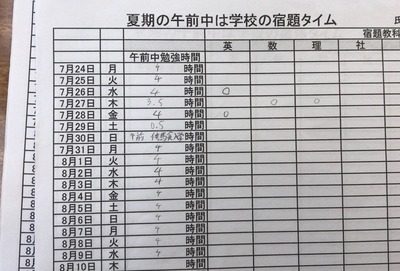 夏期の午前中は学校の宿題タイム
宿題教科
午前中勉強時間 英 数 理 社
7月24日 月 4 時間
7月25日 火 4 時間
7月26日 水 4 時間 〇
7月27日 木 3.5 時間 〇 〇
7月28日 金 4 時間 〇
7月29日 土 0.5 時間
7月30日 日 午前 時間
7月31日 月 4 時間
8月1日 火 4 時間
8月2日 水 4 時間
8月3日 木 4 時間
8月4日 金 4 時間
8月5日 土 4 時間
8月6日 日 4 時間
8月7日 月 4 時間
8月8日 火 4 時間
8月9日 水 4 時間
8月10日 木 時間